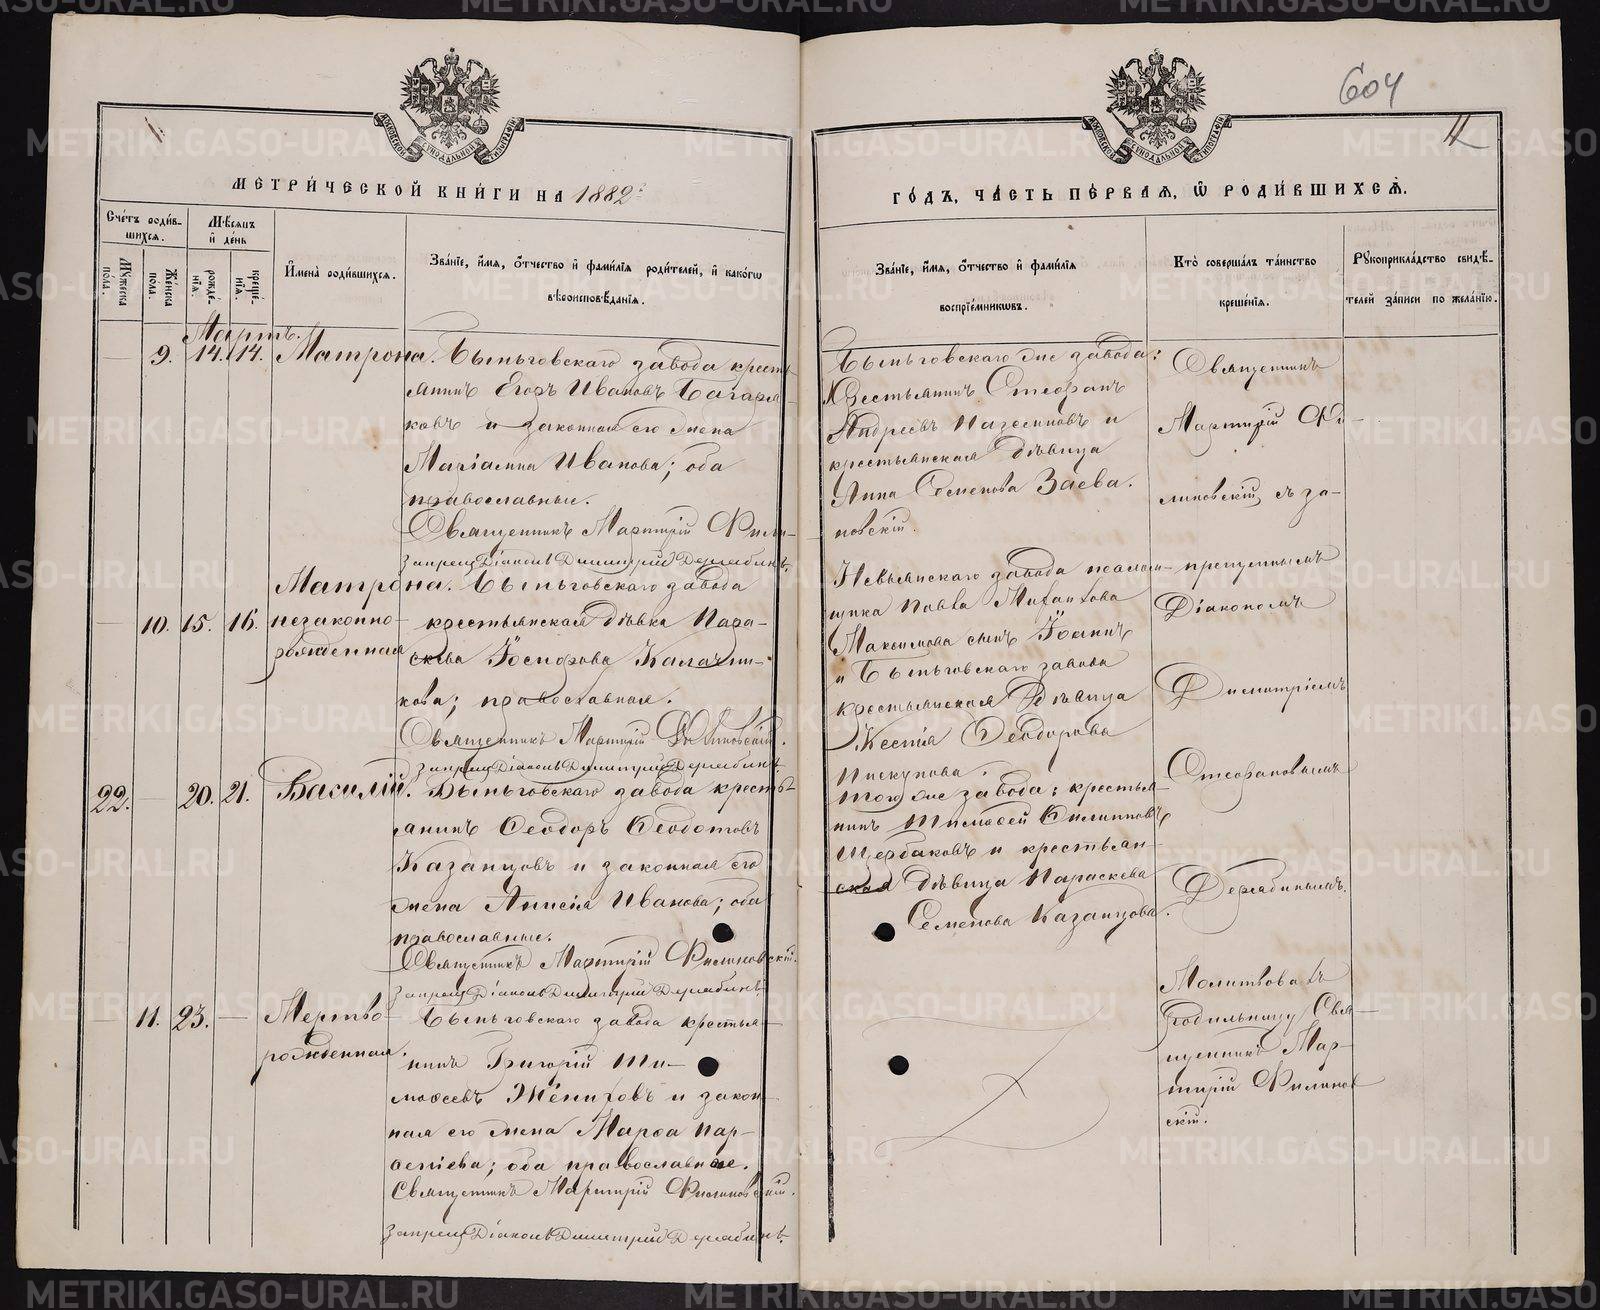 604
11
МЕТРИ́ЧЕСКОЙ КНИ́ГИ НА 1882й
ГО́ДЪ, ЧА́СТЬ ПЕ́РВАЯ, Ѡ РОДИ́ВШИХСЯ.
Сче́тъ роди́в-
шихся.
Мѣсяцъ
и де́нь
Му́жеска
по́ла.
Же́нска
пола.
рожде́-
нїя.
креще́-
нїя.
Имена̀ роди́вшихся.
Зва́нїе, и́мя, о́тчество и фами́лїя роди́телей, и како́гѡ
вѣроисповѣ́данїя.
Зва́нїе, и́мя, о́тчество и фами́лїя
воспрїе́мникѡвъ.
Кто̀ соверша́лъ та́инство
креще́нїя.
Рукоприкла́дство свидѣ́-
телей за́писи по жела́нїю.
Мартъ.
— 9. 14. 14. Матрона.
Быньговскаго завода кресть-
янинъ Егоръ Ивановъ Багаря-
ковъ и законная его жена
Маріамна Иванова; оба
православные.
Священникъ Мартирій Фили-
новскій.
Запрещ. Діаконъ Димитрій Дерябинъ.
Быньговскаго же завода:
Крестьянинъ Стефанъ
Андреевъ Наземновъ и
крестьянская дѣвица
Анна Семенова Заева.
Священникъ
Мартирій Фи-
линовскій, съ за-
прещеннымъ
Діакономъ
Димитріемъ
Стефановымъ
Дерябинымъ.
— 10. 15. 16. Матрона.
незаконно-
рожденная
Быньговскаго завода
крестьянская дѣвка Пара-
скева Іосифова Калачни-
кова; православная.
Священникъ Мартирій Филиновскій.
Запрещ. Діаконъ Димитрій Дерябинъ.
Невьянскаго завода
Павла
Максимова сынъ Іоаннъ
и Быньговскаго завода
крестьянская дѣвица
Ксенія Феодорова
Пискунова.
22. — 20. 21. Василій.
Быньговскаго завода кресть-
янинъ Феодоръ Феодотовъ
Казанцовъ и законная его
жена Анисія Иванова; оба
православные.
Священникъ Мартирій Филиновскій.
Запрещ. Діаконъ Димитрій Дерябинъ.
того же завода: крестья-
нинъ Тимофей Филипповъ
Щербаковъ и крестьян-
ская дѣвица Параскева
Семенова Казанцова.
— 11. 23. — Мертво
рожденная.
Быньговскаго завода крестья-
нинъ Григорій Ти-
мофеевъ Жениховъ и закон-
ная его жена Марфа Пар-
фенiева; оба православные.
Священникъ Мартирій Филиновскій.
Запрещ. Діаконъ Димитрій Дерябинъ.
Молитвовалъ
родильницу Свя-
щенникъ Мар-
тирій Филинов
скій.
METRIKI.GASO-URAL.RU